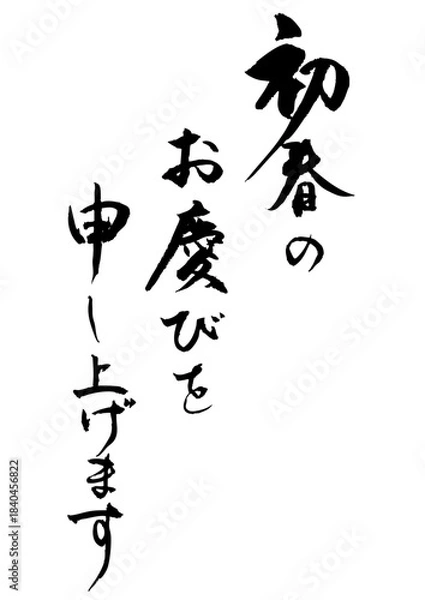 初春の
お慶びを
申し上げます
Adobe Stock | #1840456822
Adobe Stock